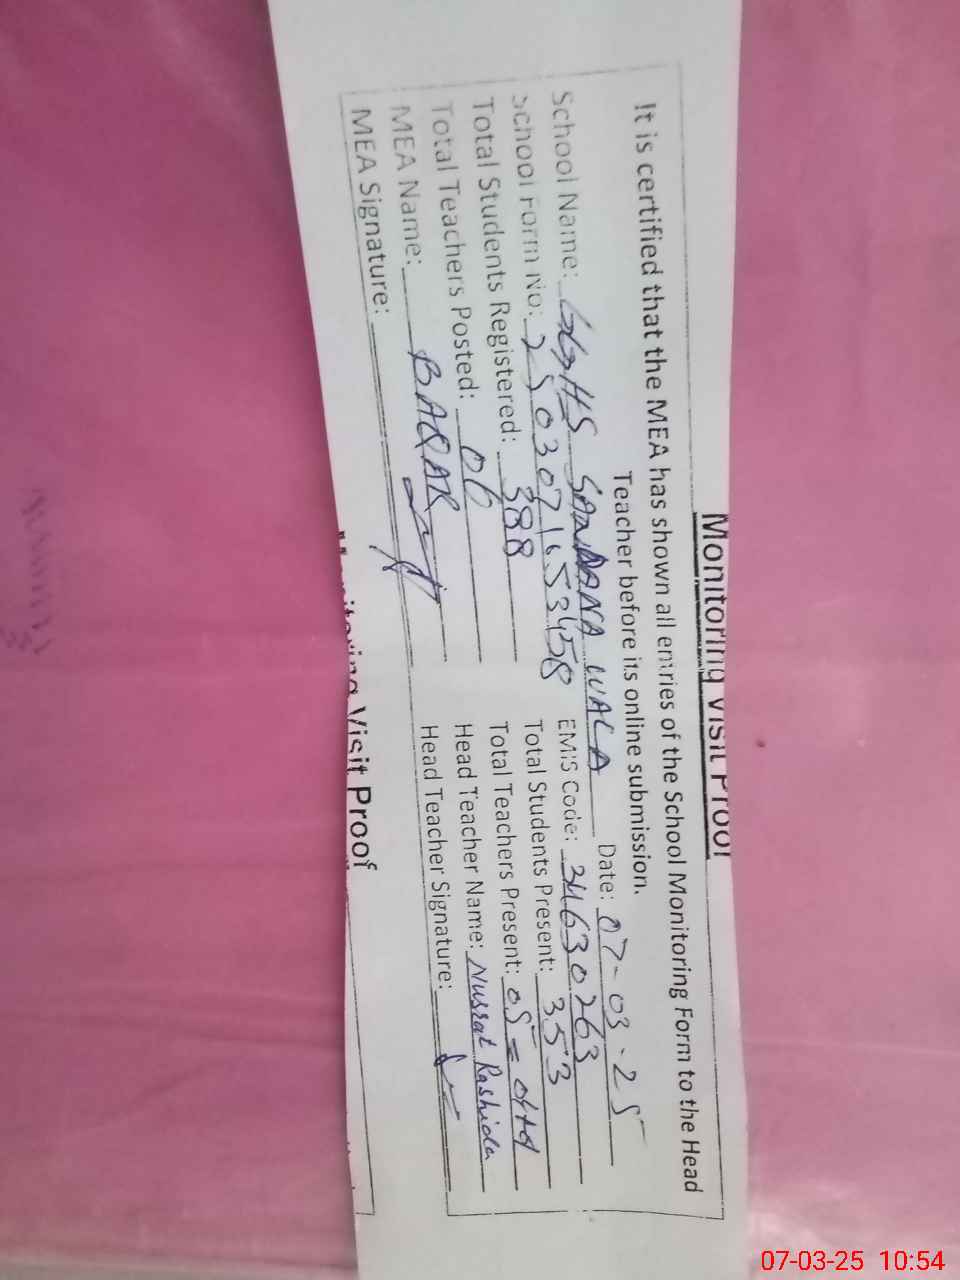 Monitoring Visit Proof
It is certified that the MEA has shown all entries of the School Monitoring Form to the Head
Teacher before its online submission.
School Name: GGHS SANDANA WALA Date: 07-03-25
School Form No: 2503071653458 EMIS Code: 34630263
Total Students Registered: 388 Total Students Present: 353
Total Teachers Posted: 06 Total Teachers Present: 05 =
MEA Name: BAQAR Head Teacher Name: Nusrat Rashida
MEA Signature: Head Teacher Signature:
Monitoring Visit Proof
07-03-25 10:54